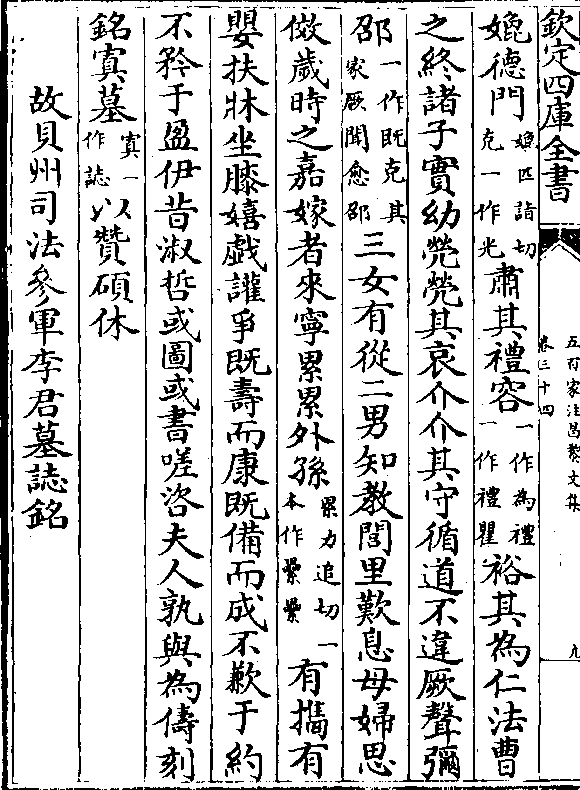 欽定四庫全書
五百家注昌黎文集
卷三十四
九
媲德門媲匹詣切克一作光肅其禮容一作為禮一作禮瞿裕其為仁法曹
之終諸子實幼煢煢其哀介介其守循道不違厥聲彌
邵一作既克其家厥聞愈邵三女有從二男知教閭里歎息母婦思
傚歲時之嘉嫁者來寧累累外孫累力追切一本作纍纍有攜有
嬰扶牀坐膝嬉戲讙爭既壽而康既備而成不歉于約
不矜于盈伊昔淑哲或圖或書嗟咨夫人孰與為儔刻
銘寘墓寘一作誌以贊碩休
故貝州司法參軍李君墓誌銘